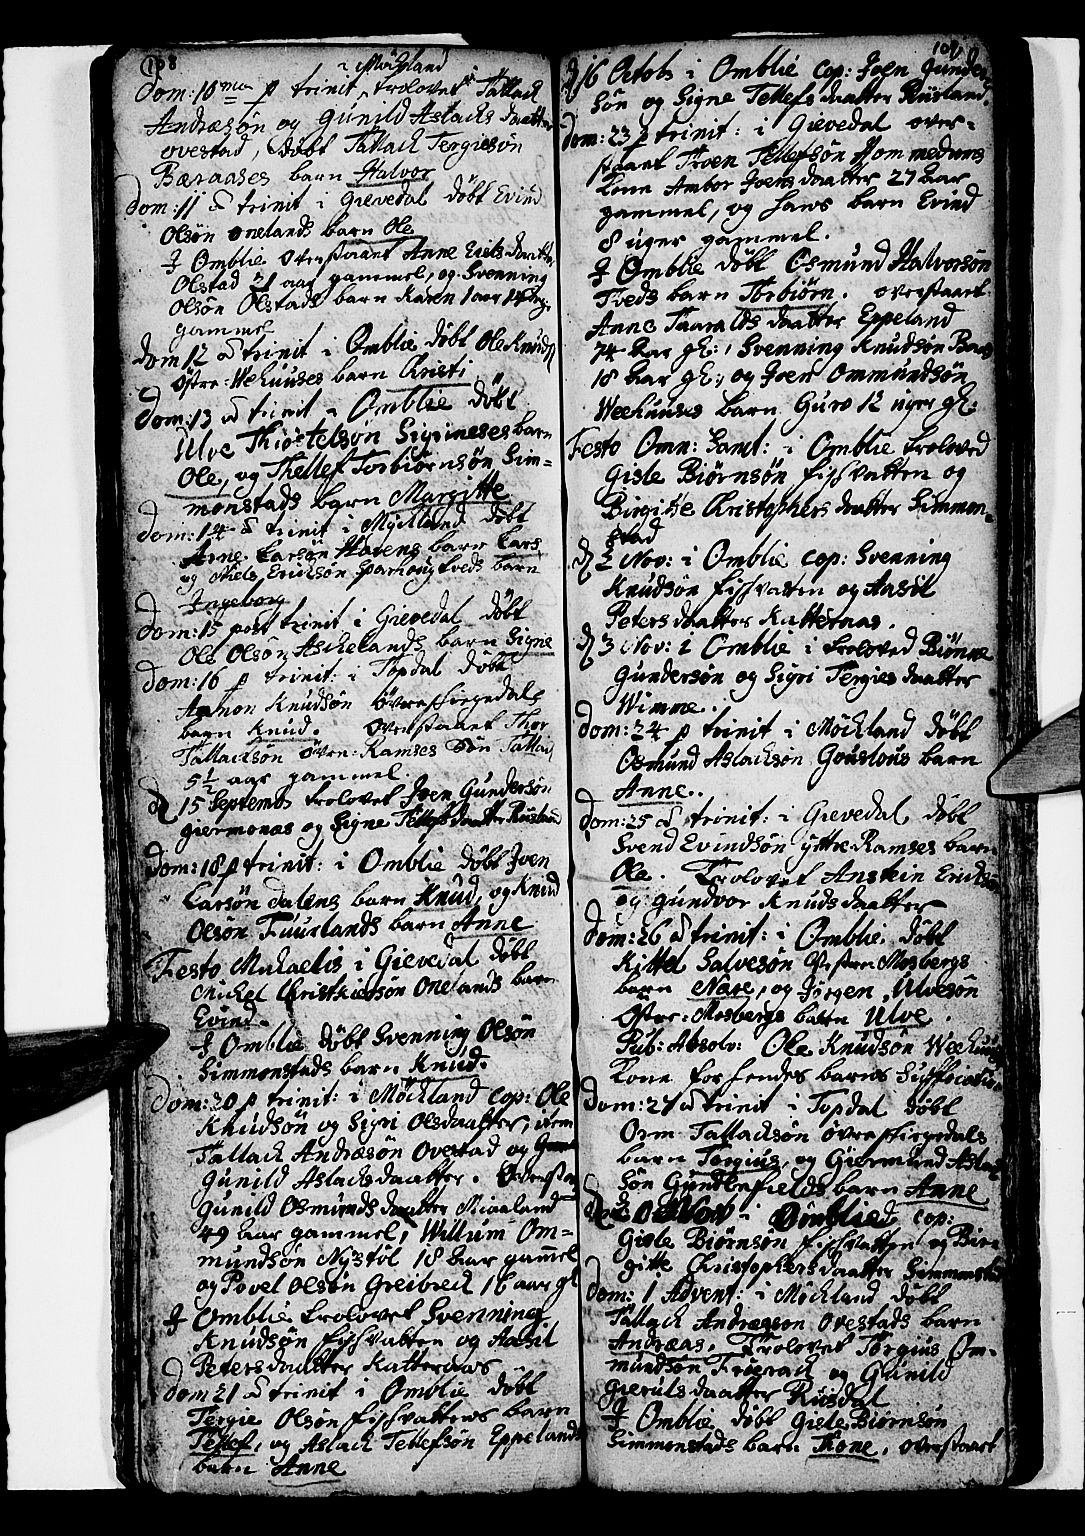 108
i Mökland
Dom: 10ma p trinit trolovet Tallack
Andræsøn og Gunild Aslachs daatter
ovestad, døbt Tallack Tergiesøn
Bæraases barn Halvor
Dom: 11 à trinit i Gievedal døbt Evind
Olsøn Onelands barn Ole
J Omblie overstaaet Anne Eriks daatter
Olstad 71 aar gammel, og Svenning
Olsøn Olstads barn Karen 1 aar 14
gammel
Dom 12 à trinit i Omblie døbt Ole Knuds
østre-Wehuuses barn Christi
Dom: 13 à trinit i Omblie døbt
Ulve Thiøstelsøn Sigrineses barn
Ole, og Thellef Torbiørnsøn Sim-
monstads barn Margitte
Dom: 14 à trinit i Myckland døbt
Arne Larsøn Havens barn Lars
og Niels Erichsøn barn
Ingeborg
Dom: 15 post trinit i Gievedal døbt
Ole Olsøn Askelands barn Signe
Dom: 16 p trinit: i Topdal døbt
Aamon Knudsøn öfvre
barn Knud. Overstaaet Thor
Tallacksøn øvre-Ramses Søn Tallack
5½ aar gammel.
d 15 Septemb trolovet Joen Gundersøn
giermonæs og Signe Tellefsdaatter Risland
Dom: 18 p trinit: i Omblie døbt Joen
Larsøn Dalens barn Knud, og Knud
Olsøn Fuurlands barn Anne
Festo Michaelis i Gievedal døbt
Michel Christhiersøn Onelands barn
Evind.
J Omblie døbt Svenning Olsøn
Simmonstads barn Knud.
Dom: 20 p trinit: i Möckland cop: Ole
Knudsøn og Sigri Olsdaatter, item
Tallack Andræsøn Ovestad og
Gunild Aslachsdaatter. Overstaaet
Gunild Osmunds daatter Miaaland
49 Aar gammel, Willum Om-
mundsøn Nystöl 18 Aar gammel
og Povel Olsøn Greibrek 16 aar gl
J Omblie trolovet Svenning
Knudsøn fishvatten og Aasil
Petersdaatter Katteraas
Dom 21 à trinit i Omblie døbt
Tergie Olsøn fishvattens barn
Tellef, og Aslack Tellefsøn Eppelands
barn Anne
109
d 16 Octob i Omblie cop: Joen Gunder-
søn og Signe Tellefs daatter Riisland.
Dom: 23 p trinit: i Gievedal over-
staaet Troen Tellefsøn Hommedums
Kone Ambor Joens daatter 27 aar
gammel, og hans barn Evind
8 uger gammel.
J Omblie døbt Osmund Halvorsøn
Tveds barn Torbiörn. overstaaet
Anne Taaralds daatter Eppeland
74 Aar gl:, Svenning Knudsøn
18 Aar gl:, og Joen Ommundsøn
Weehuuses barn Guro 12 uger gl:
Festo Omn: Sanct: i Omblie troloved
Gisle Biørnsøn fishvatten og
Birgitte Christophers daatter Simmon-
stad
d 2 Nov: i Omblie cop: Svenning
Knudsøn fishvatten og Aasil
Peters daatter Katteraas.
d 3 Nov: i Omblie troloved Biönne
Gundersøn og Sigri Tergies daatter
Wimme.
Dom: 24 p trinit i Möckland døbt
Osmund Aslachsøn Gouslous barn
Anne.
Dom: 25 à trinit: i Gievedal døbt
Svend Evindsøn yttre-Ramses barn
Ole. Trolovet Anstein Erichsøn
og Gundvor Knudsdaatter
Dom: 26 à trinit: i Omblie døbt
Kittel Salvesøn Vestre Mosbergs
barn Nare, og Jörgen Ulvesøn
Øster-Mosbergs barn Ulve.
Pub: Absolv: Ole Knudsøn Weehuus
Kone for hendes barns Suffocation
Dom: 27 à trinit i Topdal døbt
Orm Tallacksøn övre
barn Tergius, og Giermund Aslack-
søn barn Anne
Nov i Omblie cop:
Gisle Biørnsøn fishvatten og Bir-
gitte Christophers daatter Simmonstad
Dom: 1 Advent: i Möckland døbt
Tallack Andræsøn Ovestads barn
Andræas. Trolovet Tergius Om-
mundsøn og Gunild
Gierulsdaatter Rüsdal
J Omblie døbt Gisle Biørnsøn
Simmonstads barn Thone, overstaaet